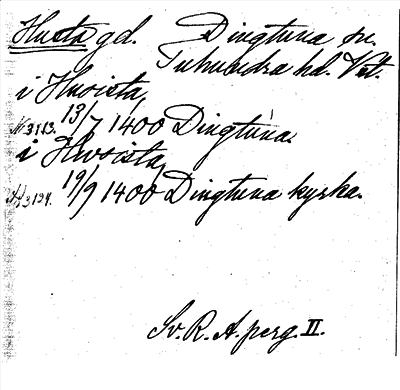 Husta gd. Dingtuna sn.
Tuhundra hd. Vstm.
i Hwista,
N 3113. 13/7 1400 Dingtuna.
i Hwoista,
N 3134. 19/9 1400 Dingtuna kyrka.
Sv. R. A. perg. II.